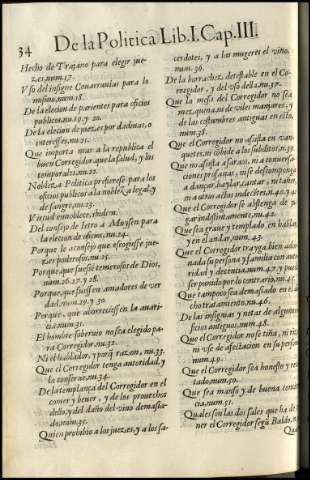 34 De la Politica Lib. I. Cap. III.
Hecho de Trajano para elegir jue-
zes, num. 17.
Vso del insigne Conarrauias para lo
mismo, num. 18.
De la elecion de parientes para oficios
publicos, nu. 19. y 20.
De la elecion de juezes por dadiuas, o
intereses, nu. 21.
Que importa mas a la republica el
buen Corregidor, que la salud, y los
temporales, nu. 22.
Nobleza Politica prefierese para los
oficios publicos a la nobleza legal, y
de sangre, nu. 23.
Virtud ennoblece, ibidem.
Del consejo de Ietro a Moysen para
la elecion de oficios, nu. 24.
Porque le aconsejò que escogiesse jue-
zes poderosos, nu. 25.
Porque, que fuesse temerosos de Dios,
num. 26. 27. y 28.
Porque, que fuessen amadores de ver
dad, nu. 29. y 30.
Porque, que aborreciessen la auari-
cia, num. 31.
El hombre soberuio no sea elegido pa-
ra Corregidor, nu. 32.
Ni el hablador, y porq̃ razon, nu. 33.
Que el Corregidor tenga autoridad, y
la conserue, nu. 34.
De la templança del Corregidor en el
comer y beuer, y de los prouechos
dello, y del daño del vino demasia-
do, num. 35.
Quien prohibio a los juezes, y a los sa-
cerdotes, y a las mugeres el vino,
num. 36.
De la borrachez detestable en el Co-
rregidor, y del vso della, nu. 37.
Que la mesa del Corregidor no sea
mezquina, ni de viles manjares, y
de las costumbres antiguas en ello,
num. 38.
Que el Corregidor no assista en van-
quetes, ni combide a los subditos, nu. 39.
Que no assista a saraos, ni a conuersa-
ciones profanas, ni se descomponga
a dançar, baylar, cantar, ni tañer,
ni a otros actos indecentes, nu. 40. y 41.
Que el Corregidor se abstenga de ju-
gar indistintamente, nu. 42.
Que sea graue y templado en hablar,
y en el andar, num. 43.
Que el Corregidor trayga bien ador-
nada su persona y familia con auto-
ridad y decencia, num. 47. y puede
ser punido por lo contrario, nu. 45.
Que tampoco sea demasiado en el di-
cho tratamiento, nu. 46.
De las insignias y notas de algunos
oficios antiguos, num. 48.
Que el Corregidor no se tiña, ni rize,
ni vse de afeytacion en su persona,
num. 49.
Que el Corregidor sea honesto y reca-
tado, num. 50.
Que sea manso y de buena condi-
cia, num. 51.
Quales son las dos sales que ha de te-
ner el Corregidor segun Baldo, n.
Qua